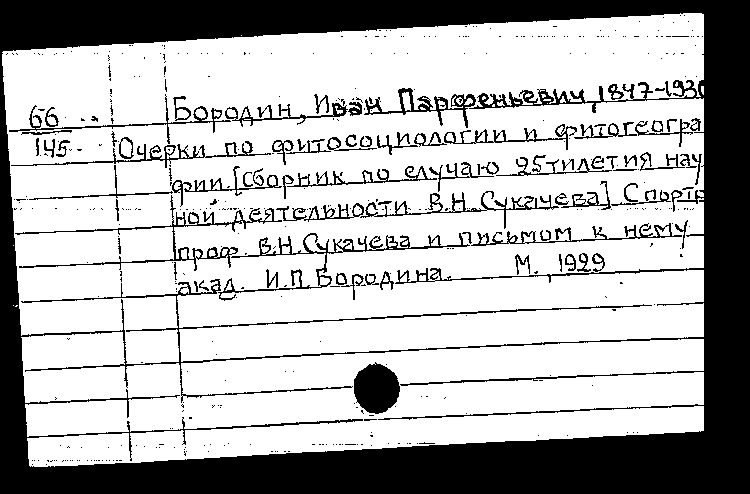 66
145
Бородин, Иван Парфеньевич, 1847-1930
Очерки по фитосоциологии и фитогеогра
фии. [Сборник по случаю 25тилетия науч
ной деятельности В.Н. Сукачева] С портр
проф. В.Н. Сукачева и письмом к нему
акад. И.П. Бородина. М., 1929